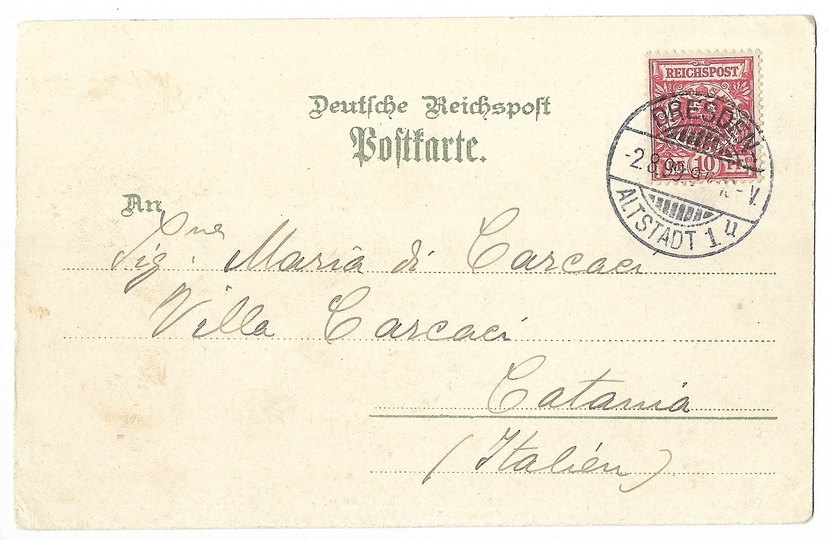 Deutsche Reichspost
Postkarte.
REICHSPOST
10 PF
DRESDEN
-2.8.99. 9-
V.
ALTSTADT 1. u
An
Sig.na Maria di Carcaci
Villa Carcaci
Catania
(Italien)